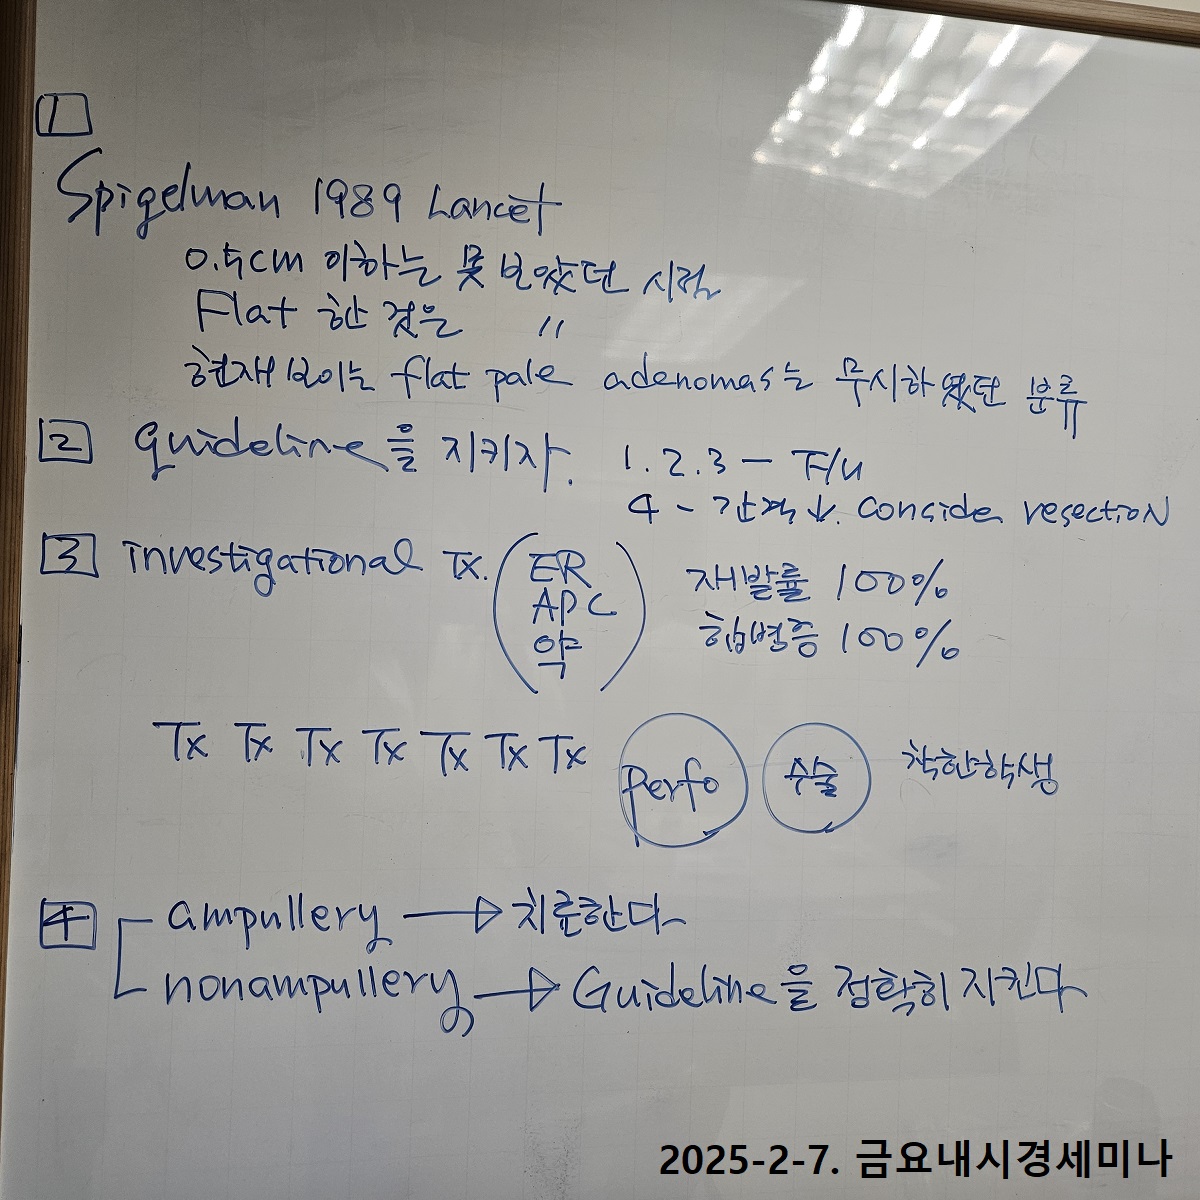 1
Spigelman 1989 Lancet
0.5cm 이하는 못 보았던 시절
Flat 한 것은 〃
현재 보이는 flat pale adenomas는 무시하였던 분류
2 guideline을 지키자. 1.2.3 – F/u
4 – 간격↓. consider resection
3 investigational Tx. ( ER 재발률 100%
APC
약 ) 합병증 100%
Tx Tx Tx Tx Tx Tx Tx perfo 수술 착한학생
4 ampullery → 치료한다
nonampullery → Guideline을 정확히 지킨다
2025-2-7. 금요내시경세미나